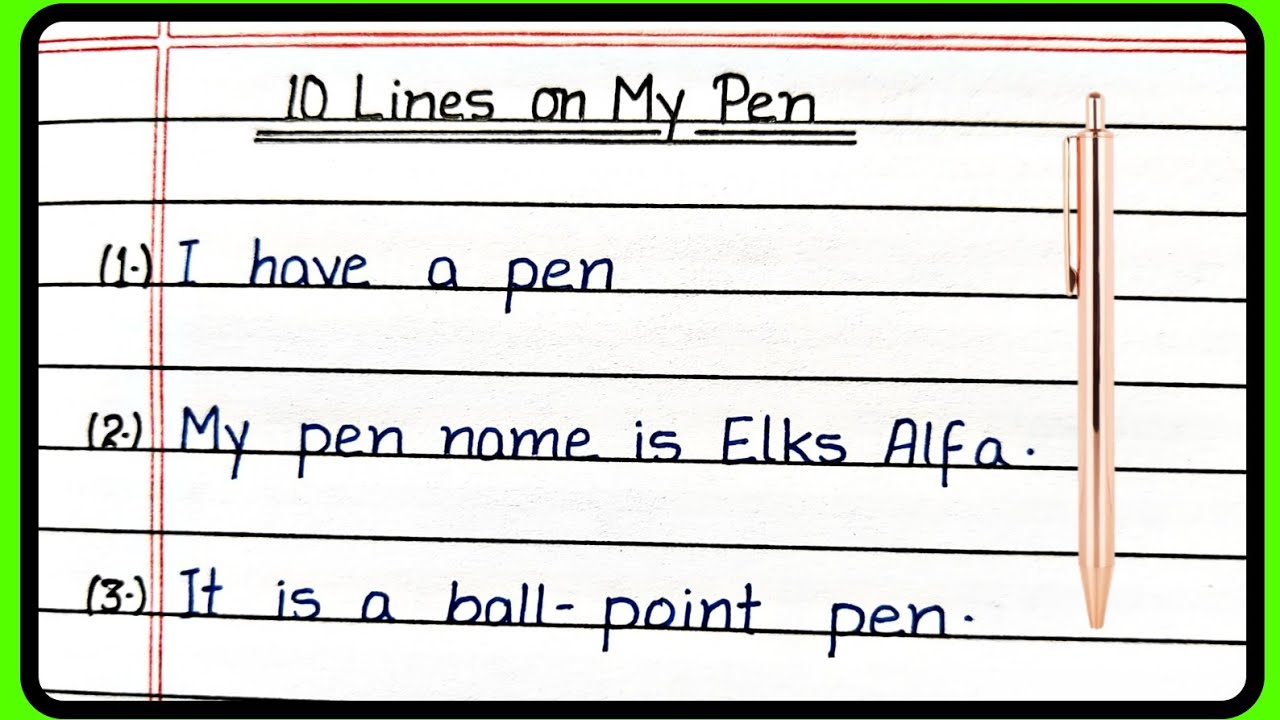 10 Lines on My Pen
(1.) I have a pen
(2.) My pen name is Elks Alfa.
(3.) It is a ball-point pen.